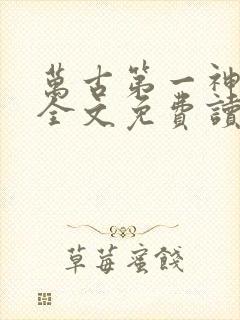 萬古第一神
全文免費讀
草莓蜜餞